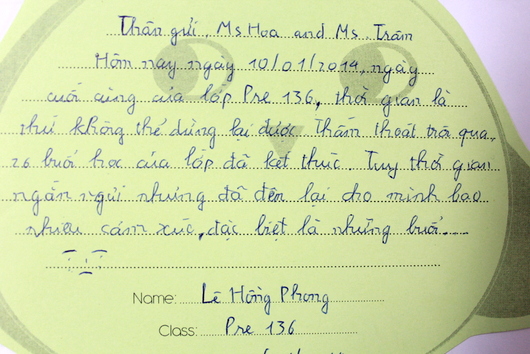 Thân gửi, Ms Hoa and Ms. Trâm
Hôm nay ngày 10/01/2019, ngày
cuối cùng của lớp Pre 136, thời gian là
thứ không thể dừng lại được. Thấm thoát trôi qua,
26 buổi học của lớp đã kết thúc. Tuy thời gian
ngắn ngủi nhưng đã đem lại cho mình bao
nhiêu cảm xúc, đặc biệt là những buổi....
Name: Lê Hồng Phong
Class: Pre 136